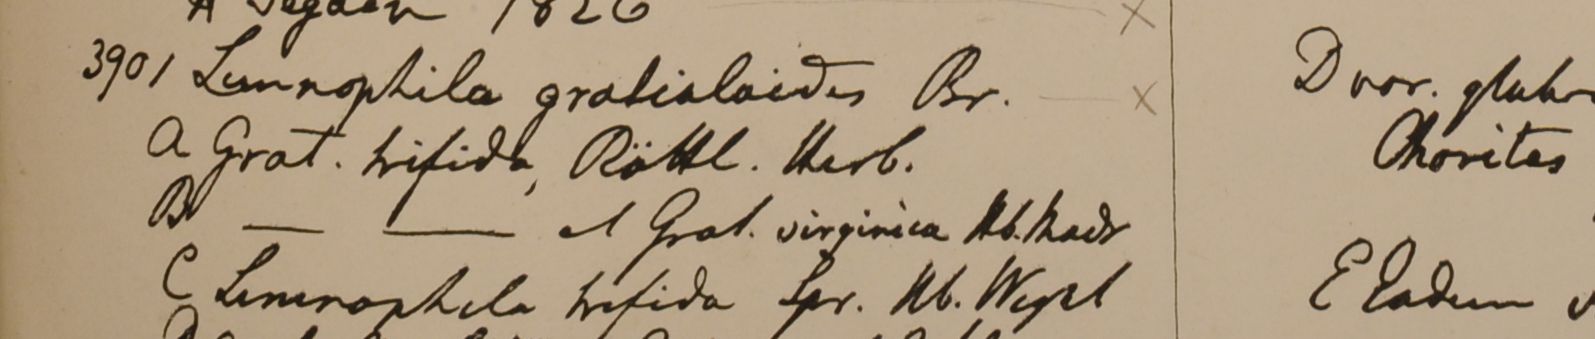 A Segaen 1826
3901 Limnophila gratioloides Br. — ×
A Grat. trifida, Röttl. Herb.
B — — et Grat. virginica Hb. Madr
C Limnophila trifida Spr. Hb. Wight
D var. glabr
Choritas
E Eadem